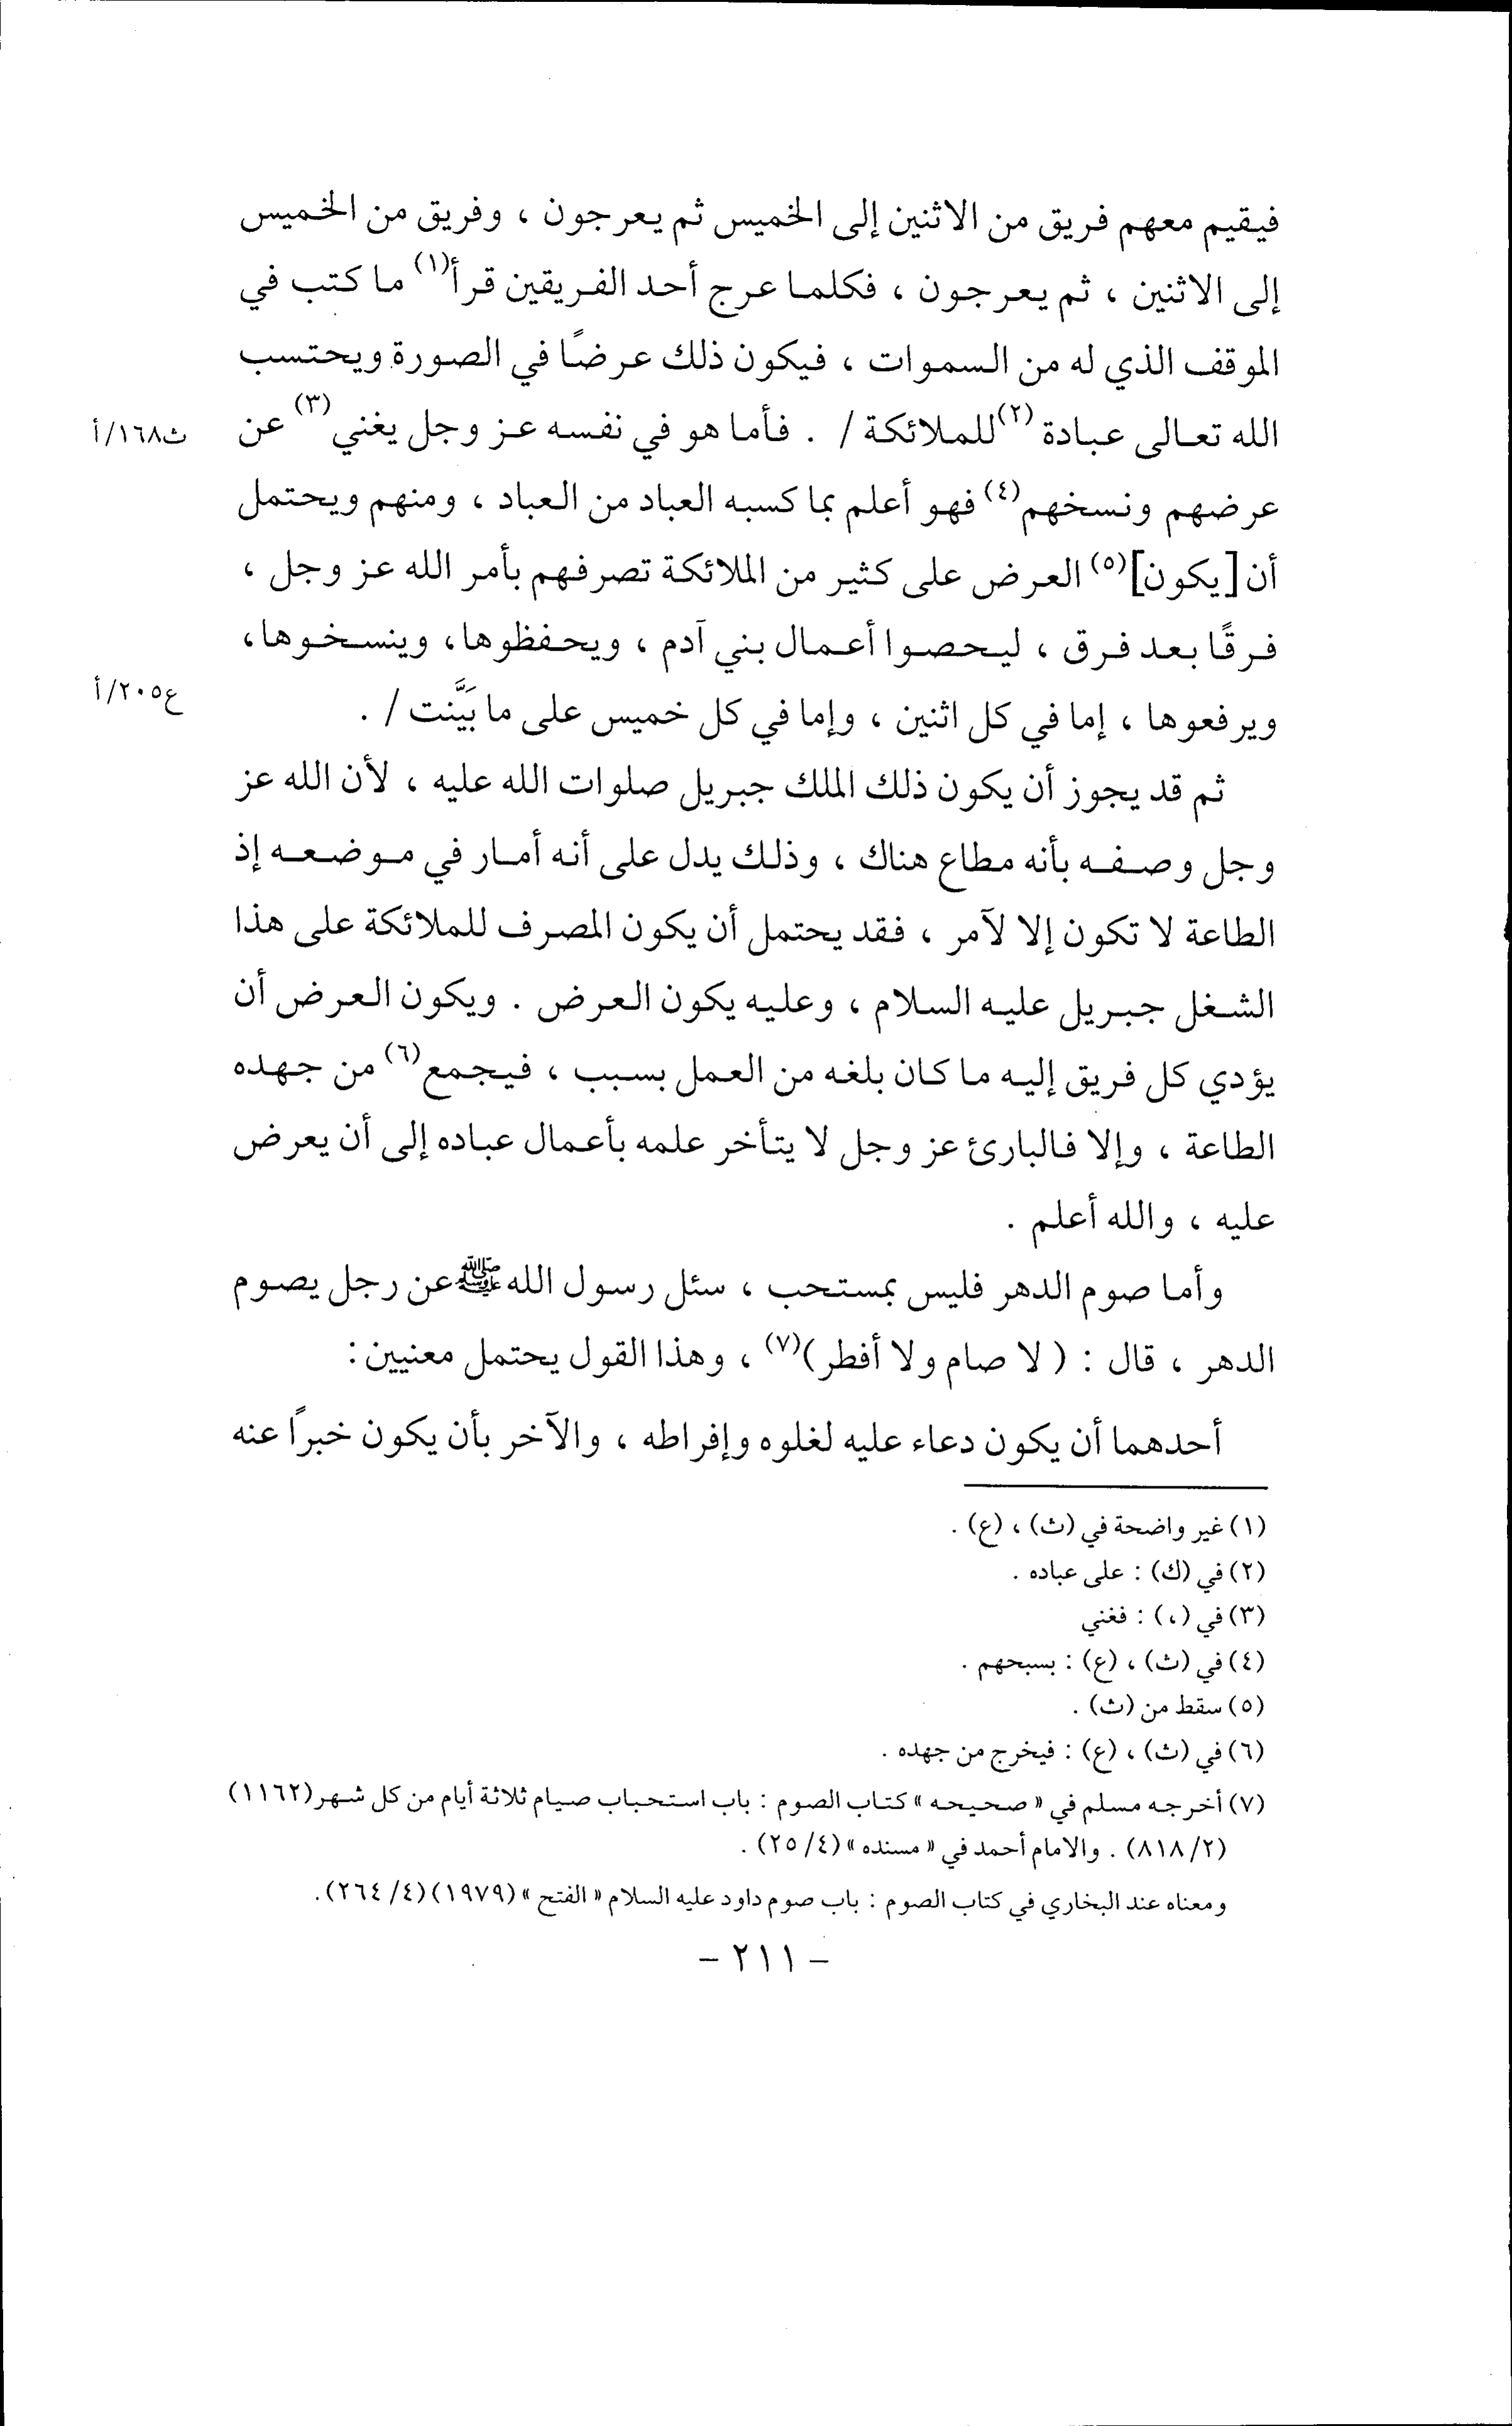 فيقيم معهم فريق من الاثنين إلى الخميس ثم يعرجون ، وفريق من الخميس
إلى الاثنين ، ثم يعرجون ، فكلما عرج أحد الفريقين قرأ(١) ما كتب في
الموقف الذي له من السموات ، فيكون ذلك عرضًا في الصورة ويحتسب
الله تعالى عبادة (٢)للملائكة / . فأما هو في نفسه عز وجل يغني (٣) عن
ث١٦٨/أ
عرضهم ونسخهم(٤) فهو أعلم بما كسبه العباد من العباد ، ومنهم ويحتمل
أن [يكون](٥) العرض على كثير من الملائكة تصرفهم بأمر الله عز وجل ،
فرقًا بعد فرق ، ليحصوا أعمال بني آدم ، ويحفظوها، وينسخوها،
ويرفعوها ، إما في كل اثنين ، وإما في كل خميس على ما بَيَّنت / .
ع٢٠٥/أ
ثم قد يجوز أن يكون ذلك الملك جبريل صلوات الله عليه ، لأن الله عز
وجل وصفه بأنه مطاع هناك ، وذلك يدل على أنه أمار في موضعه إذ
الطاعة لا تكون إلا لآمر ، فقد يحتمل أن يكون المصرف للملائكة على هذا
الشغل جبريل عليه السلام ، وعليه يكون العرض . ويكون العرض أن
يؤدي كل فريق إليه ما كان بلغه من العمل بسبب ، فيجمع(٦) من جهده
الطاعة ، وإلا فالبارئ عز وجل لا يتأخر علمه بأعمال عباده إلى أن يعرض
عليه ، والله أعلم .
وأما صوم الدهر فليس بمستحب ، سئل رسول الله ﷺ عن رجل يصوم
الدهر ، قال : ( لا صام ولا أفطر )(٧) ، وهذا القول يحتمل معنيين :
أحدهما أن يكون دعاء عليه لغلوه وإفراطه ، والآخر بأن يكون خبرًا عنه
(١) غير واضحة في (ث) ، (ع) .
(٢) في (ك) : على عباده .
(٣) في (،) : فغني
(٤) في (ث) ، (ع) : بسبحهم .
(٥) سقط من (ث) .
(٦) في (ث) ، (ع) : فيخرج من جهده .
(٧) أخرجه مسلم في « صحيحه » كتاب الصوم : باب استحباب صيام ثلاثة أيام من كل شهر (١١٦٢)
(٨١٨/٢) . والامام أحمد في « مسنده » (٢٥/٤) .
ومعناه عند البخاري في كتاب الصوم : باب صوم داود عليه السلام « الفتح » (١٩٧٩) (٢٦٤/٤).
– ٢١١ –